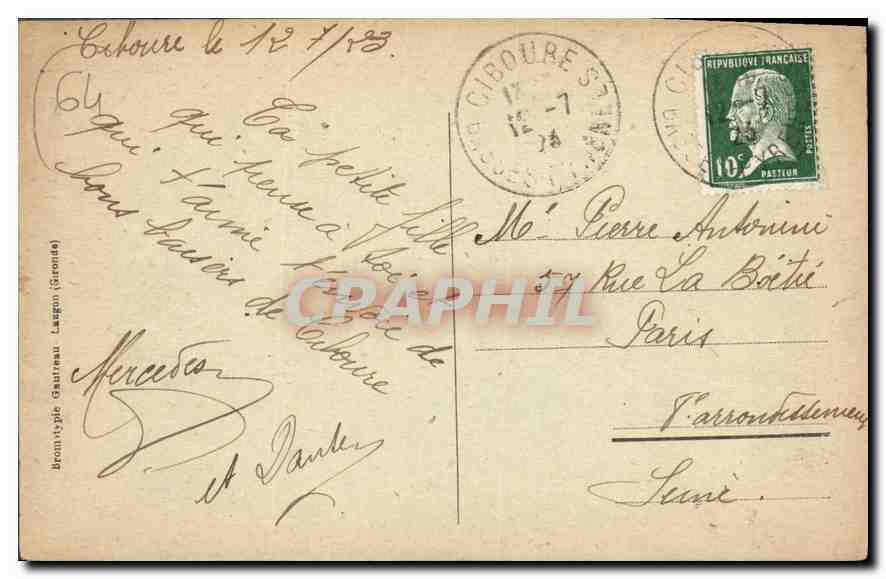 Ciboure le 12 7/23
64
Ta petite fille
qui pense à toi et
qui t'aime t'envoie de
bons baisers de Ciboure
Mercedes
et Dante
CIBOURE
BSSES PYRÉNÉES
12 -7
REPUBLIQUE FRANÇAISE
POSTES
10c
PASTEUR
Mr Pierre Antonini
57 Rue La Boétie
Paris
arrondissement
Seine.
Bromotypie Gautreau Langon (Gironde)
CPAPHIL